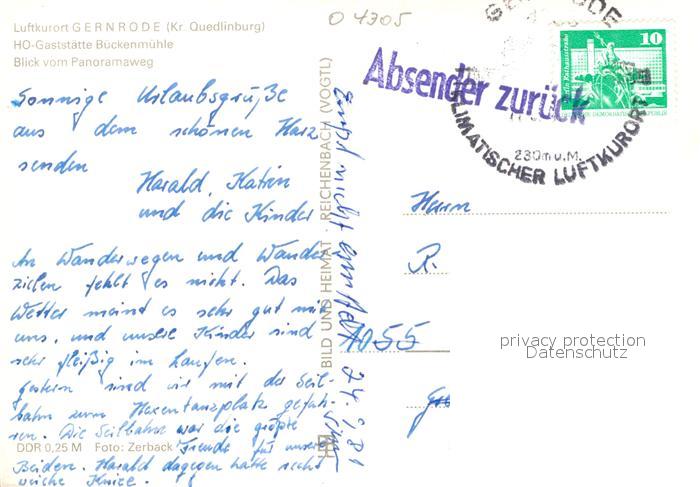 Luftkurort GERNRODE (Kr. Quedlinburg)
HO-Gaststätte Bückenmühle
Blick vom Panoramaweg
Sonnige Urlaubsgrüße
aus dem schönen Harz
senden
Harald, Katrin
und die Kinder
An Wanderwegen und Wander
zielen fehlt es nicht. Das
Wetter meint es sehr gut mit
uns, und unsere Kinder sind
sehr fleißig im Laufen.
Gestern sind wir mit der Seil-
bahn zum Hexentanzplatz gefah-
ren. Die Seilbahn war die größte
Freude für unsere
Beiden. Harald dagegen hatte recht
weiche Kniee.
DDR 0,25 M Foto: Zerback
BILD UND HEIMAT · REICHENBACH (VOGTL)
Empf nicht ermittelt
24.9.81
O 4305
Absender zurück
GERNRODE
KLIMATISCHER LUFTKURORT
230m ü.M.
10
Herrn
R.
1055
privacy protection
Datenschutz